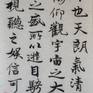 也天朗氣清
仰觀宇宙之大
之盛所以遊目騁
視聽之娛信可